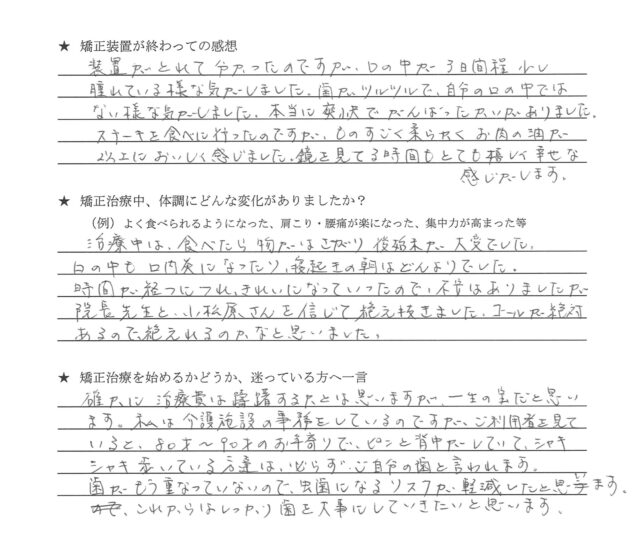 ★ 矯正装置が終わっての感想
装置がとれて分かったのですが、口の中が3日間程少し
腫れている様な気がしました。歯がツルツルで、自分の口の中では
ない様な気がしました。本当に爽快でがんばったかいがありました。
ステーキを食べに行ったのですが、ものすごく柔らかくお肉の油が
以上においしく感じました。鏡を見てる時間もとても嬉しく幸せな
感じがします。
★ 矯正治療中、体調にどんな変化がありましたか？
（例）よく食べられるようになった、肩こり・腰痛が楽になった、集中力が高まった等
治療中は、食べたら物がはさがり後始末が大変でした。
口の中も口内炎になったり、寝起きの朝はどんよりでした。
時間が経つにつれ、きれいになっていったので、不安はありましたが
院長先生と、小松原さんを信じて絶え抜きました。ゴールが絶対
あるので、絶えれるのかなと思いました。
★ 矯正治療を始めるかどうか、迷っている方へ一言
確かに治療費は躊躇するかとは思いますが、一生の宝だと思い
ます。私は介護施設の事務をしているのですが、ご利用者を見て
いると、80才〜90才のお年寄りで、ピンと背中がしていて、シャキ
シャキ歩いている方達は、いまらず、ご自分の歯と言われます。
歯がもう重なっていないので、虫歯になるリスクが軽減したと思います。
これからはしっかり歯を大事にしていきたいと思います。